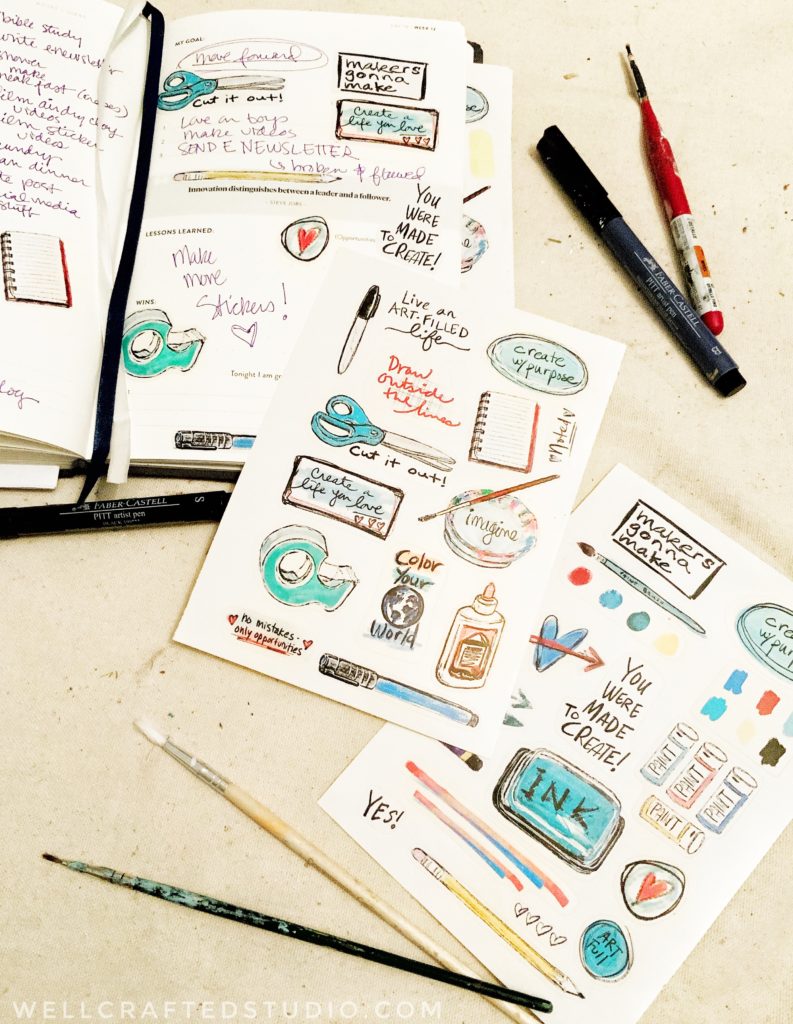 bible study
shower
make
videos
film sticker
videos
dinner
post
social media
stuff
WEEK 12
MY GOAL:
move forward
makers
gonna
make
Cut it out!
create a
life you love
Love on boys
make videos
SEND E NEWSLETTER
broken & flawed
Innovation distinguishes between a leader and a follower.
STEVE JOBS
YOU
WERE
MADE
TO
CREATE!
LESSONS LEARNED:
(Opportunities
Make
more
stickers!
WINS:
Tonight I am gr
FABER-CASTELL
PITT artist pen
B
FABER-CASTELL
PITT artist pen
S
Live an
ART-FILLED
life
create
w/purpose
Draw
outside
the lines
Cut it out!
create a
life you love
imagine
Color
Your
World
no mistakes-
only opportunities
makers
gonna
make
create
w/purpose
YOU
WERE
MADE
TO
CREATE!
PAINT
PAINT
PAINT
PAINT
INK
YES!
ART
Full
WELLCRAFTEDSTUDIO.COM